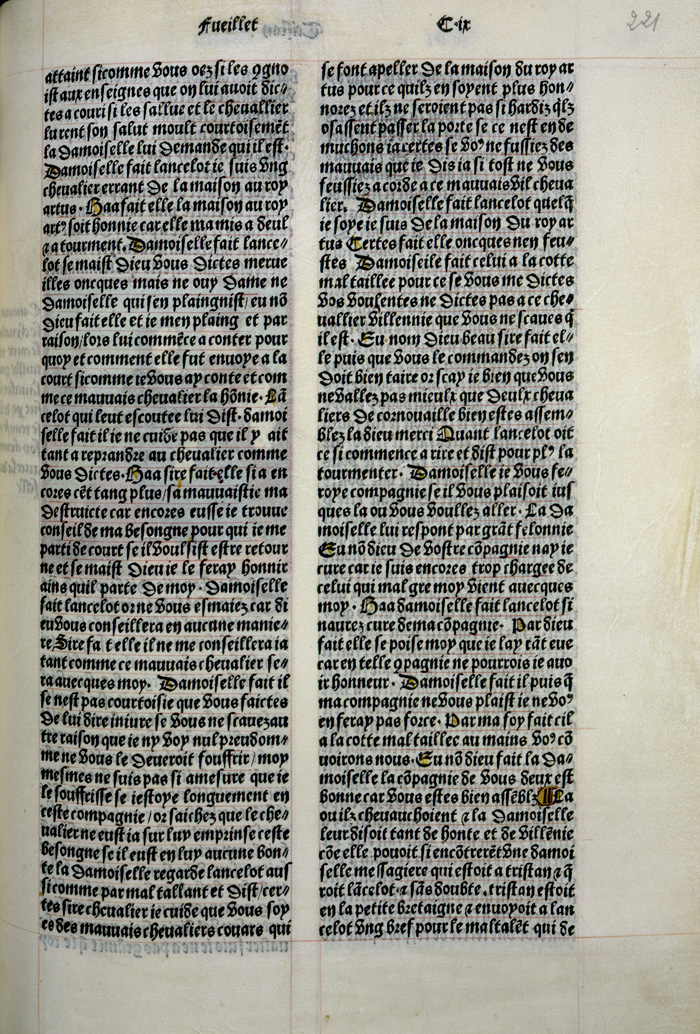 Fueillet
C.ix
221
attaint sicomme vous oez si les ꝯgno
ist aux enseignes que on lui auoit dic⸗
tes acouri si les sallue et le cheuallier
lu rent son salut moult courtoisemẽt
la damoiselle lui demande qui il est.
Damoiselle fait lancelot ie suis vng
cheualier errant de la maison au roy
artus. Haa fait elle la maison au roy
artꝰ soit honnie car elle ma mis a deul
⁊ a tourment. Damoiselle fait lance⸗
lot se maist dieu vous dictes merue
illes oncques mais ne ouy dame ne
damoiselle qui sen plaingnist/ eu nõ
dieu fait elle et ie men plaing et par
raison/lors lui commẽce a conter pour
quoy et comment elle fut enuoye a la
court sicomme ie vous ay conte et com
me ce mauuais cheualier la hõnie. Lã
celot qui leut escoutee lui dist. damoi
selle fait il ie ne cuide pas que il y ait
tant a reprandre au cheualier comme
vous dictes. Haa sire fait elle si a en
cores cẽt tang plus/sa mauuaistie ma
destruicte car encores eusse ie trouue
conseil de ma besongne pour qui ie me
parti de court se il voulsist estre retour
ne et se maist dieu ie le feray honnir
ains quil parte de moy. Damoiselle
fait lancelot or ne vous esmaiez car di
eu vous conseillera en aucune manie⸗
re, Sire fa t elle il ne me conseillera ia
tant comme ce mauuais cheualier se⸗
ra auecques moy. Damoiselle fait il
se nest pas courtoisie que vous faictes
de lui dire iniure se vous ne scauez au
tre raison que ie ny voy nul preudom⸗
me ne vous le deueroit souffrir/ moy
mesmes ne suis pas si amesure que ie
le souffrisse se iestoye longuement en
ceste compagnie/or saichez que le che⸗
ualier ne eust ia sur luy emprinse ceste
besongne se il eust en luy aucune bon⸗
te la damoiselle regarde lancelot aus
si comme par mal tallant et dist/cer⸗
tes sire cheualier ie cuide que vous soy
es des mauuais cheualiers couars qui
se font apeller de la maison du roy ar
tus pour ce quilz en soyent plus hon⸗
norez et ilz ne seroient pas si hardiz q̃lz
osassent passer la porte se ce nest en de
muchons ia certes se voꝰ ne fussiez des
mauuais que ie dis ia si tost ne vous
feussiez acorde a ce mauuais vil cheua
lier. Damoiselle fait lancelot quelq̃
ie soye ie suis de la maison du roy ar
tus Certes fait elle oncques nen feu⸗
stes Damoiselle fait celui a la cotte
mal taillee pour ce se vous me dictes
vos voulsentes ne dictes pas a ce che⸗
uallier villennie que vous ne scaues q̃
il est. Eu nom dieu beau sire fait el⸗
le puis que vous le commandez on sen
doit bien taire or scay ie bien que vous
ne vallez pas mieulx que deulx cheua
liers de cornouaille bien estes assem⸗
blez la dieu merci Quant lancelot oit
ce si commence a rire et dist pour plꝰ la
tourmenter. Damoiselle ie vous fe⸗
roye compagnie se il vous plaisoit ius
ques la ou vous voullez aller. La da
moiselle lui respont par grãt felonnie
Eu nõ dieu de vostre cõpagnie nay ie
cure car ie suis encores trop chargee de
celui qui mal gre moy vient auecques
moy. Haa damoiselle fait lancelot si
naurez cure de ma cõpagnie. Par dieu
fait elle se poise moy que ie lay tãt eue
car en telle ꝯpagnie ne pourrois ie auo
ir honneur. Damoiselle fait il puis q̃
ma compagnie ne vous plaist ie ne voꝰ
en feray pas force. Par ma foy fait cil
a la cotte mal taillee au mains voꝰ cõ
uoirons nous. Eu nõ dieu fait la da⸗
moiselle la cõpagnie de vous deux est
bonne car vous estes bien assẽblez La
ou ilz cheuauchoient ⁊ la damoiselle
leur disoit tant de honte et de villenie
cõe elle pouoit si encõtrerẽt vne damoi
selle messagiere qui estoit a tristan ⁊ q̃
roit lãcelot. ⁊ sãs doubte. tristan estoit
en la petite bretaigne ⁊ enuoyoit a lan
celot vng bref pour le maltalẽt qui de